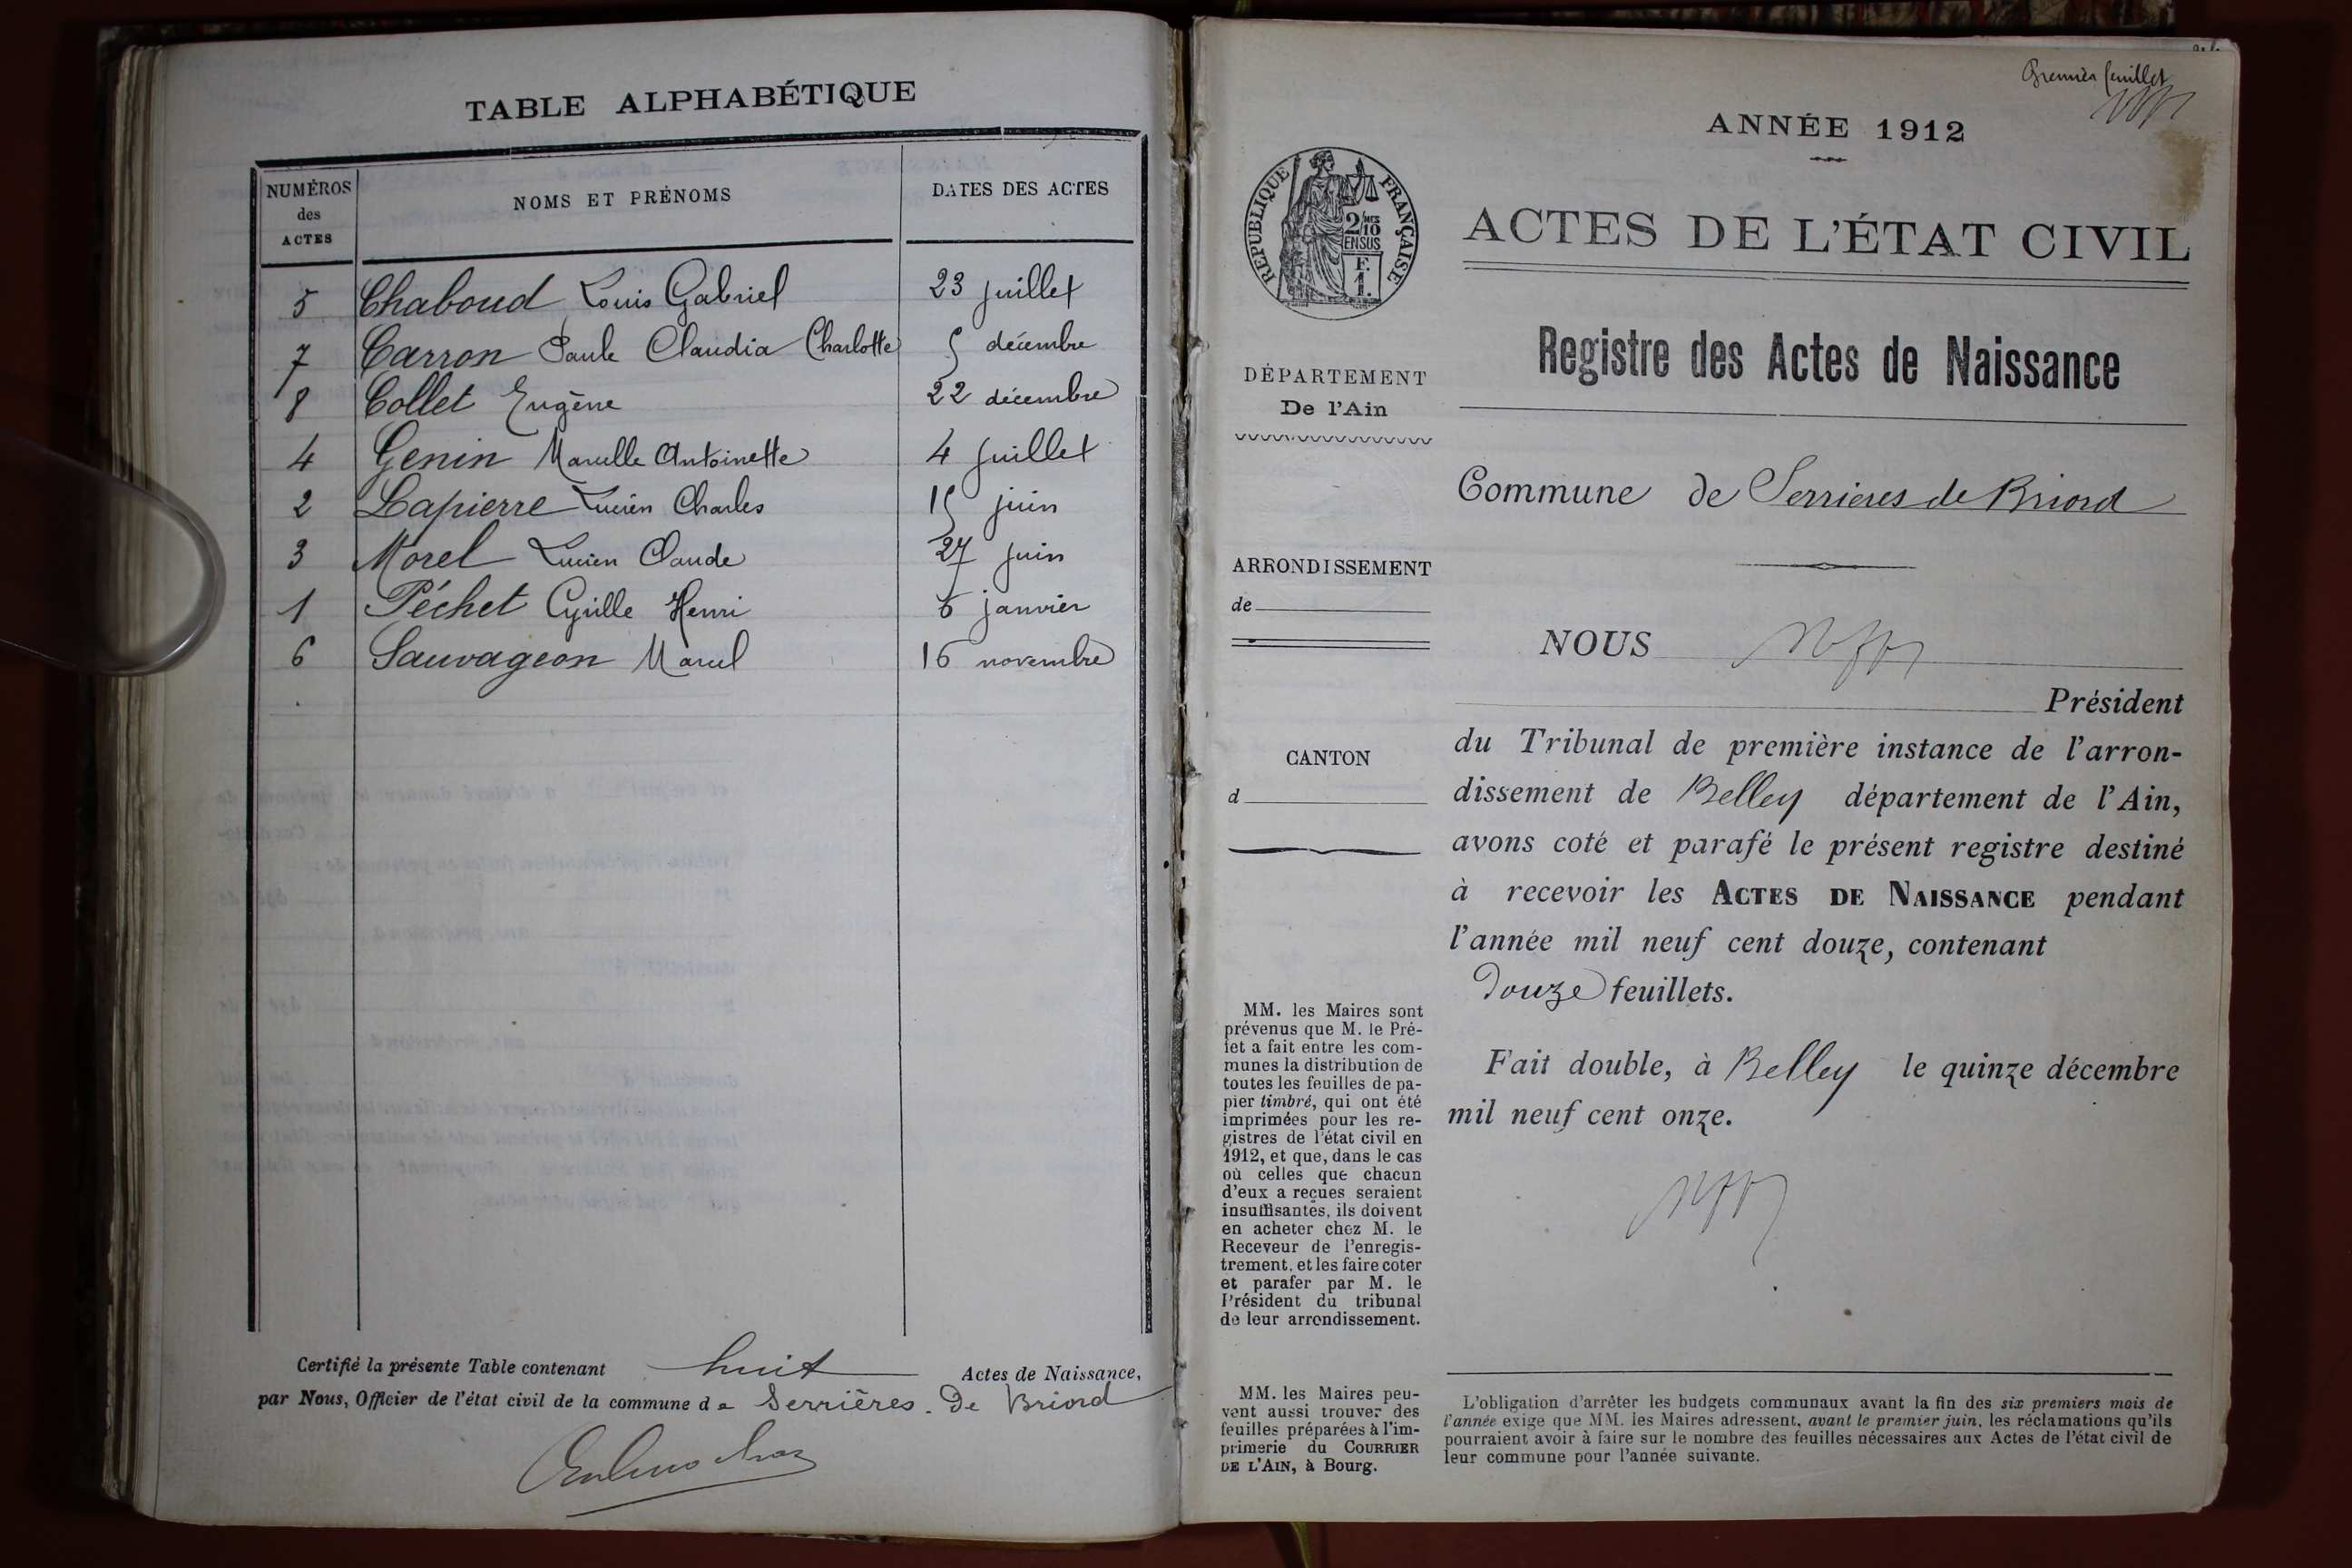 TABLE ALPHABÉTIQUE
NUMÉROS
des
ACTES
NOMS ET PRÉNOMS
DATES DES ACTES
5 Chaboud Louis Gabriel 23 juillet
7 Carron Paule Claudia Charlotte 5 décembre
8 Collet Eugène 22 décembre
4 Genin Marcelle Antoinette 4 juillet
2 Lapierre Lucien Charles 15 juin
3 Morel Lucien Claude 27 juin
1 Péchet Cyrille Henri 6 janvier
6 Sauvageon Marcel 16 novembre
Certifié la présente Table contenant huit Actes de Naissance,
par Nous, Officier de l'état civil de la commune de Serrières-De Briord
Premier feuillet
ANNÉE 1912
RÉPUBLIQUE FRANÇAISE
2/10
EN SUS
F.
1.
ACTES DE L'ÉTAT CIVIL
Registre des Actes de Naissance
DÉPARTEMENT
De l'Ain
Commune de Serrieres de Briord
ARRONDISSEMENT
de
NOUS
Président
CANTON
d
du Tribunal de première instance de l'arron-
dissement de Belley département de l'Ain,
avons coté et parafé le présent registre destiné
à recevoir les ACTES DE NAISSANCE pendant
l'année mil neuf cent douze, contenant
Douze feuillets.
Fait double, à Belley le quinze décembre
mil neuf cent onze.
MM. les Maires sont
prévenus que M. le Pré-
fet a fait entre les com-
munes la distribution de
toutes les feuilles de pa-
pier timbré, qui ont été
imprimées pour les re-
gistres de l'état civil en
1912, et que, dans le cas
où celles que chacun
d'eux a reçues seraient
insuffisantes, ils doivent
en acheter chez M. le
Receveur de l'enregis-
trement, et les faire coter
et parafer par M. le
Président du tribunal
de leur arrondissement.
MM. les Maires peu-
vent aussi trouver des
feuilles préparées à l'im-
primerie du COURRIER
DE L'AIN, à Bourg.
L'obligation d'arrêter les budgets communaux avant la fin des six premiers mois de
l'année exige que MM. les Maires adressent, avant le premier juin, les réclamations qu'ils
pourraient avoir à faire sur le nombre des feuilles nécessaires aux Actes de l'état civil de
leur commune pour l'année suivante.